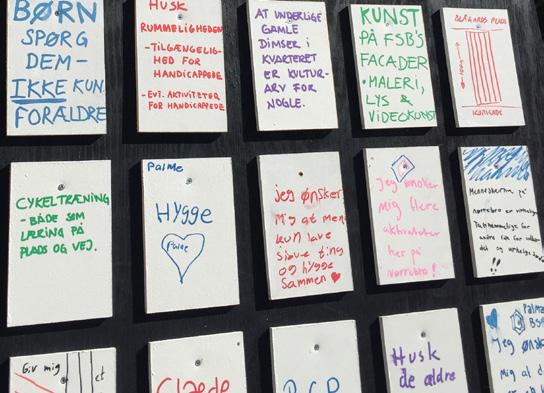 BØRN
SPØRG
DEM-
IKKE KUN
FORÆLDRE
HUSK
RUMMELIGHEDEN
-TILGÆNGELIG-
HED FOR
HANDICAPPEDE
-EVT. AKTIVITETER
FOR HANDICAPPEDE
AT UNDERLIGE
GAMLE
DIMSER I
KVARTERET
ER KULTUR-
ARV FOR
NOGLE.
KUNST
PÅ FSB'S
FACADER
•MALERI,
LYS &
VIDEOKUNST
BLÅGÅRDS PLADS
CYKELTRÆNING
- BÅDE SOM
LÆRING PÅ
PLADS OG VEJ.
Palme
HYGGE
Palme
jeg ønsker
mig at men
kun lave
sjove ting
og hygge
Sammen
Jeg ønsker
mig flere
aktiviteter
her på
nørrebro!
Menneskerne på
nørrebro er virkelig
for
det og virkelig
Giv mig
et
Glæde
Husk
de ældre
Palme
Jeg ønsk
mig at d